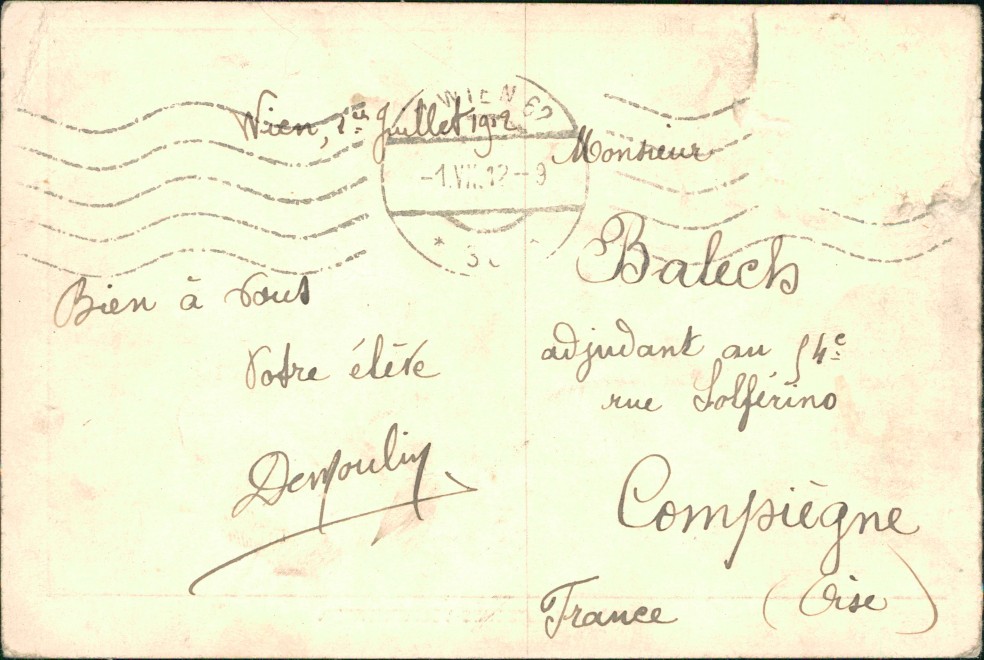 Wien, 1er Juillet 1912
WIEN 62
-1.VII.12-9
Bien à vous
Votre élève
Demoulin
Monsieur
Balech
adjudant au 54e
rue Solférino
Compiègne
(Oise)
France